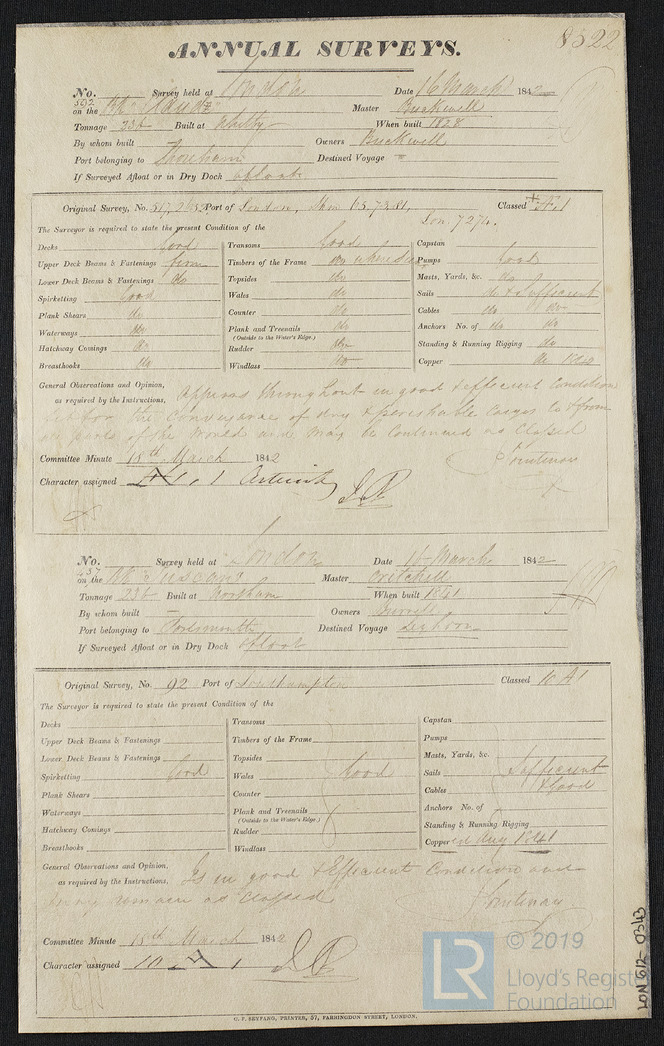 8522
ANNUAL SURVEYS.
No. 592 Survey held at London Date 16 March 1842
on the Bk Master Buckwell
Tonnage 236 Built at Whitby When built 1828
By whom built — Owners Buckwell
Port belonging to Shoreham Destined Voyage
If Surveyed Afloat or in Dry Dock Afloat
Original Survey, No. Port of London, Classed Æ 1
Lon. 7274.
The Surveyor is required to state the present Condition of the
Decks Good Transoms Good Capstan
Upper Deck Beams & Fastenings firm Timbers of the Frame do Pumps Good
Lower Deck Beams & Fastenings do Topsides do Masts, Yards, &c. do
Spirketting Good Wales do Sails do & Sufficient
Plank Shears do Counter do Cables do do
Waterways do Plank and Treenails do Anchors No. of do do
(Outside to the Water's Edge.)
Hatchway Comings do Rudder do Standing & Running Rigging do
Breasthooks do Windlass do Copper do
General Observations and Opinion, Appears throughout in good & efficient Condition
as required by the Instructions, for the Conveyance of dry & perishable Cargo to & from
all parts of the World and may be Continued as Classed
Committee Minute 18th March 1842
Character assigned Æ 1, Asterisk
No. 457 Survey held at London Date 14 March 1842
on the Bk Master Critchell
Tonnage 236 Built at When built 1841
By whom built — Owners
Port belonging to Portsmouth Destined Voyage Leghorn
If Surveyed Afloat or in Dry Dock Afloat
Original Survey, No. 92 Port of Southampton Classed 10 A 1
The Surveyor is required to state the present Condition of the
Decks Transoms Capstan
Upper Deck Beams & Fastenings Timbers of the Frame Pumps
Lower Deck Beams & Fastenings Topsides Masts, Yards, &c.
Spirketting Good Wales Good Sails Sufficient
Plank Shears Counter Cables & Good
Waterways Plank and Treenails Anchors No. of
(Outside to the Water's Edge.)
Hatchway Comings Rudder Standing & Running Rigging
Breasthooks Windlass Coppered Aug 1841
General Observations and Opinion, Is in good & Efficient Condition and
as required by the Instructions, may remain as Classed
Committee Minute 18th March 1842
Character assigned 10 A 1
C. F. SEYFANG, PRINTER, 57, FARRINGDON STREET, LONDON.
LON 612-0343
LR © 2019
Lloyd's Register
Foundation